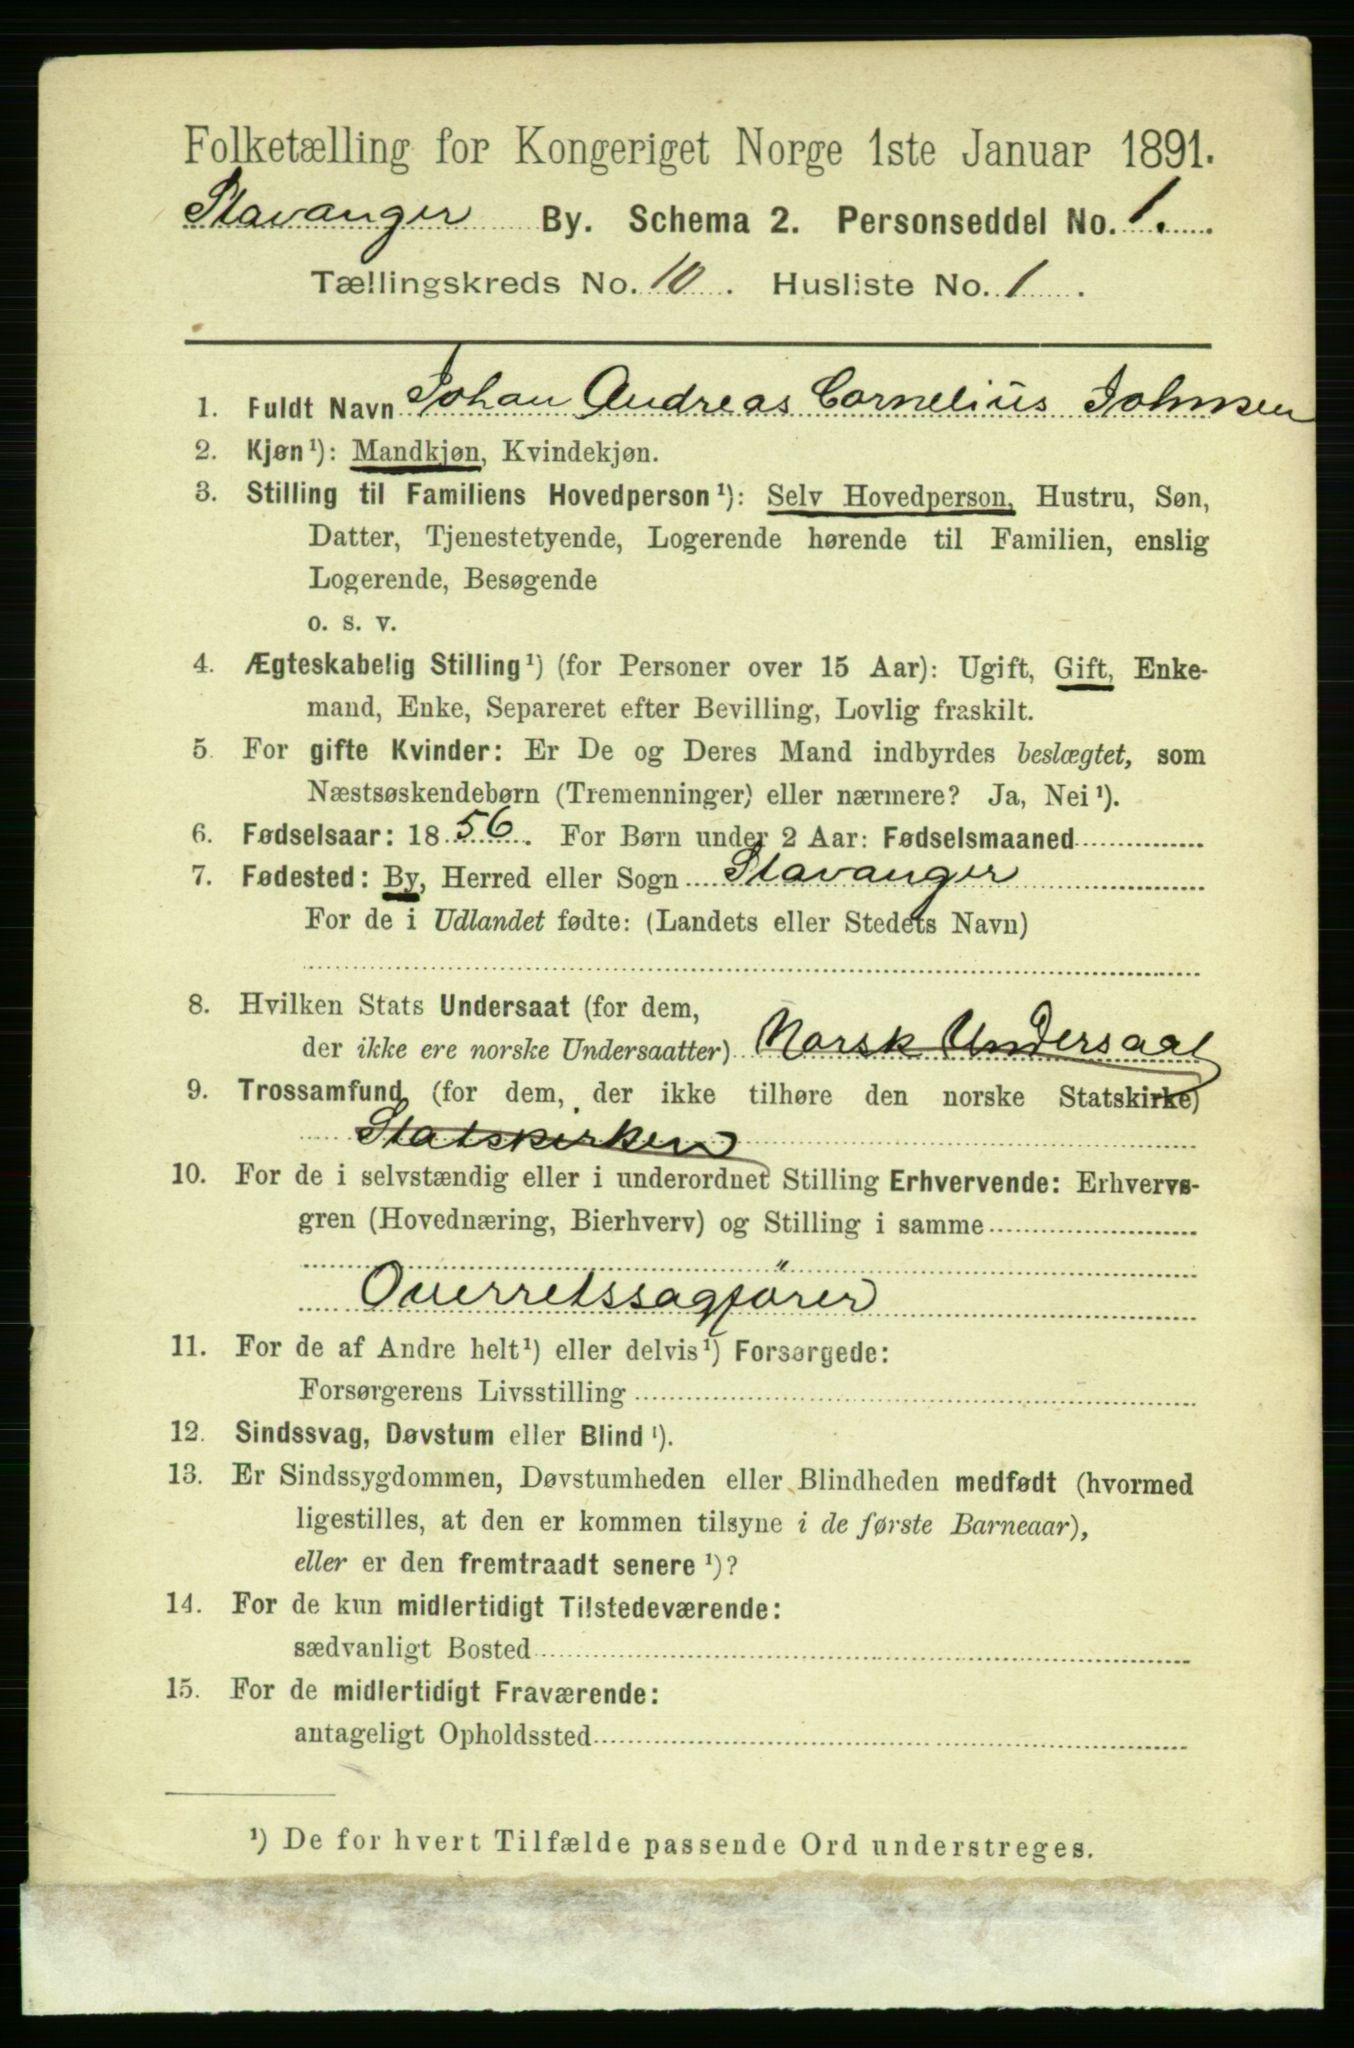 Folketælling for Kongeriget Norge 1ste Januar 1891.
Stavanger By. Schema 2. Personseddel No. 1.
Tællingskreds No. 10. Husliste No. 1.
1. Fuldt Navn Johan Andreas Cornelius Johnsen
2. Kjøn¹): Mandkjøn, Kvindekjøn.
3. Stilling til Familiens Hovedperson¹): Selv Hovedperson, Hustru, Søn,
Datter, Tjenestetyende, Logerende hørende til Familien, enslig
Logerende, Besøgende
o. s. v.
4. Ægteskabelig Stilling¹) (for Personer over 15 Aar): Ugift, Gift, Enke-
mand, Enke, Separeret efter Bevilling, Lovlig fraskilt.
5. For gifte Kvinder: Er De og Deres Mand indbyrdes beslægtet, som
Næstsøskendebørn (Tremenninger) eller nærmere? Ja, Nei¹).
6. Fødselsaar: 1856. For Børn under 2 Aar: Fødselsmaaned
7. Fødested: By, Herred eller Sogn Stavanger
For de i Udlandet fødte: (Landets eller Stedets Navn)
8. Hvilken Stats Undersaat (for dem,
der ikke ere norske Undersaatter) Norsk Undersaat
9. Trossamfund (for dem, der ikke tilhøre den norske Statskirke)
Statskirken
10. For de i selvstændig eller i underordnet Stilling Erhvervende: Erhvervs-
gren (Hovednæring, Bierhverv) og Stilling i samme
Overretssagförer
11. For de af Andre helt¹) eller delvis¹) Forsørgede:
Forsørgerens Livsstilling
12. Sindssvag, Døvstum eller Blind¹).
13. Er Sindssygdommen, Døvstumheden eller Blindheden medfødt (hvormed
ligestilles, at den er kommen tilsyne i de første Barneaar),
eller er den fremtraadt senere¹)?
14. For de kun midlertidigt Tilstedeværende:
sædvanligt Bosted
15. For de midlertidigt Fraværende:
antageligt Opholdssted
¹) De for hvert Tilfælde passende Ord understreges.